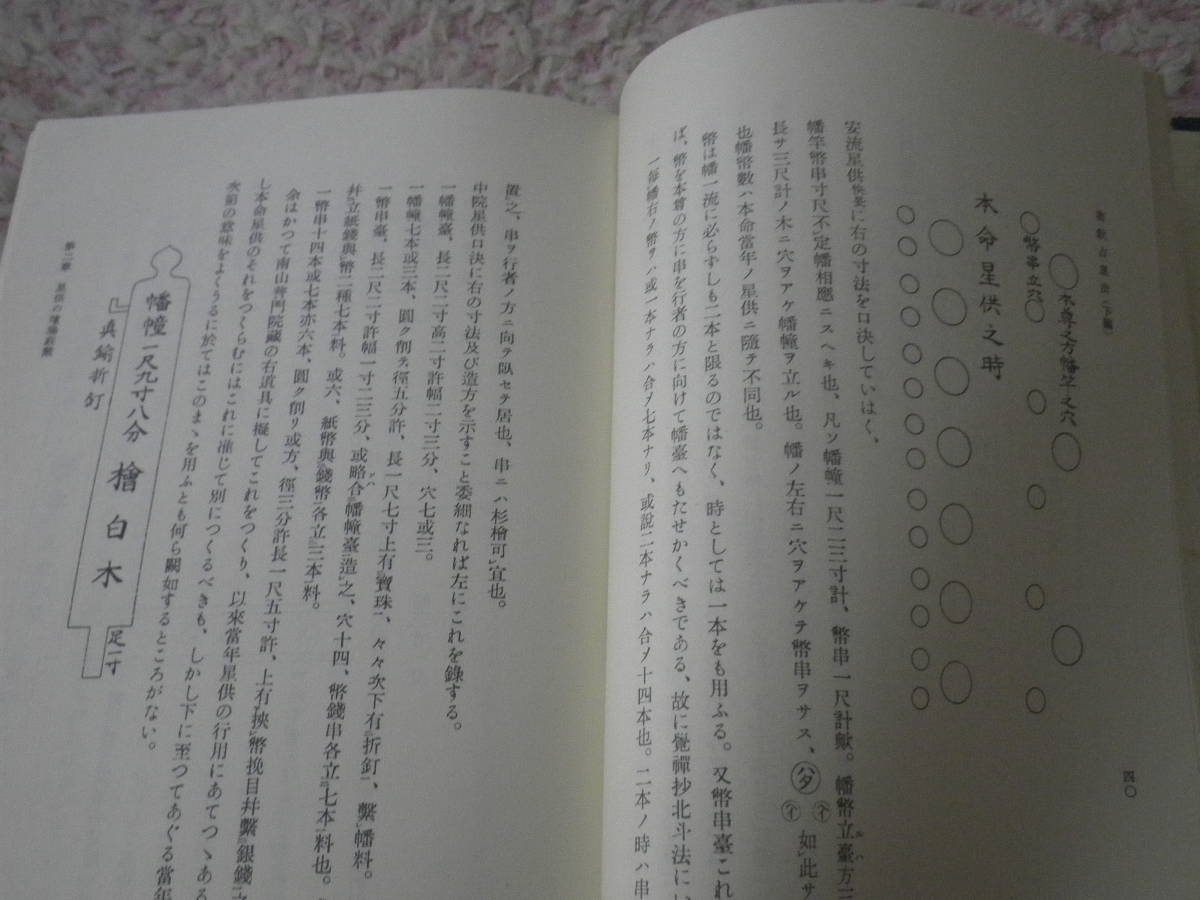 密教占星法(下編)
四〇
本尊之方幡竿之穴
幣串立穴
本命星供之時
安流星供快呆に右の寸法を口決していはく、
幡竿幣串寸尺不定幡相應ニスヘキ也、凡ソ幡幢一尺二三寸計、幣串一尺計歟。幡幣立臺方二
長サ三尺計ノ木ニ穴ヲアケ幡幢ヲ立ル也。幡ノ左右ニ穴ヲアケテ幣串ヲサス、如此サ
也幡幣數ハ本命當年ノ星供ニ隨テ不同也。
幣は幡一流に必らずしも二本と限るのではなく、時としては一本をも用ふる。又幣串臺これ
ば、幣を本尊の方に串を行者の方に向けて幡臺へもたせかくべきである、故に覺禪抄北斗法にい
一每幡右ノ幣ヲハ或一本ナラハ合ヲ七本ナリ、或說二本ナラハ合ヲ十四本也。二本ノ時ハ串
置之、串ヲ行者ノ方ニ向テ臥セテ居也、串ニハ杉檜可宜也。
中院星供口決に右の寸法及び造方を示すこと委細なれば左にこれを錄する。
一幡幢臺、長二尺二寸高二寸許幅二寸三分、穴七或三。
一幡幢七本或三本、圓ク削テ徑五分許、長一尺七寸上有寶珠、々々次下有折釘、繫幡料。
一幣串臺、長二尺二寸許幅一寸二三分、或略合幡幢臺造之、穴十四、幣錢串各立七本料也。
幷立紙錢與幣二種七本料。或六、紙幣與錢幣各立三本料。
一幣串十四本或七本亦六本、圓ク削リ或方、徑三分許長一尺五寸許、上有挾幣挽目幷繫銀錢之
余はかつて南山普門院藏の右道具に擬してこれをつくり、以來當年星供の行用にあてつゝある
し本命星供のそれをつくらむにはこれに准じて別につくるべきも、しかし下に至つてあぐる當年
次節の意味をよくうるに於てはこのまゝを用ふとも何ら闕如するところがない。
幡幢一尺九寸八分 檜白木
足一寸
眞鍮折釘
第二章 星供の